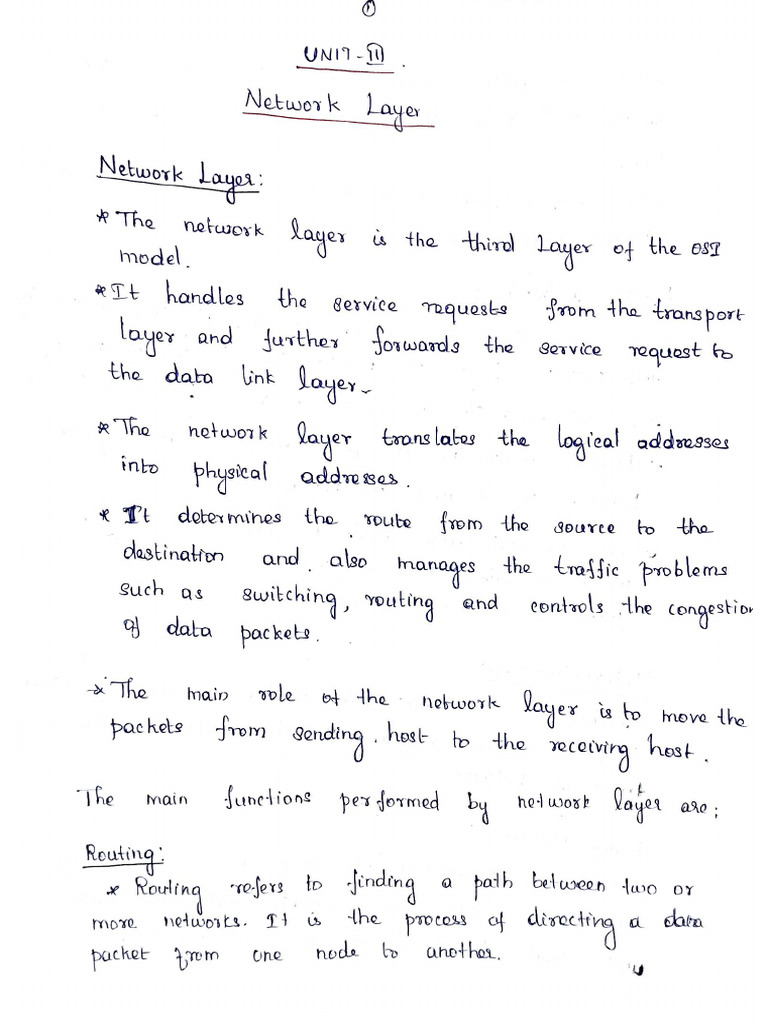 ①
UNIT-III.
Network Layer
Network Layer:
* The network layer is the third Layer of the OSI
model.
* It handles the service requests from the transport
layer and further forwards the service request to
the data link layer.
* The network layer translates the logical addresses
into physical addresses.
* It determines the route from the source to the
destination and also manages the traffic problems
such as switching, routing and controls the congestion
of data packets.
* The main role of the network layer is to move the
packets from sending host to the receiving host.
The main functions performed by network layer are:
Routing:
* Routing refers to finding a path between two or
more networks. It is the process of directing a data
packet from one node to another.